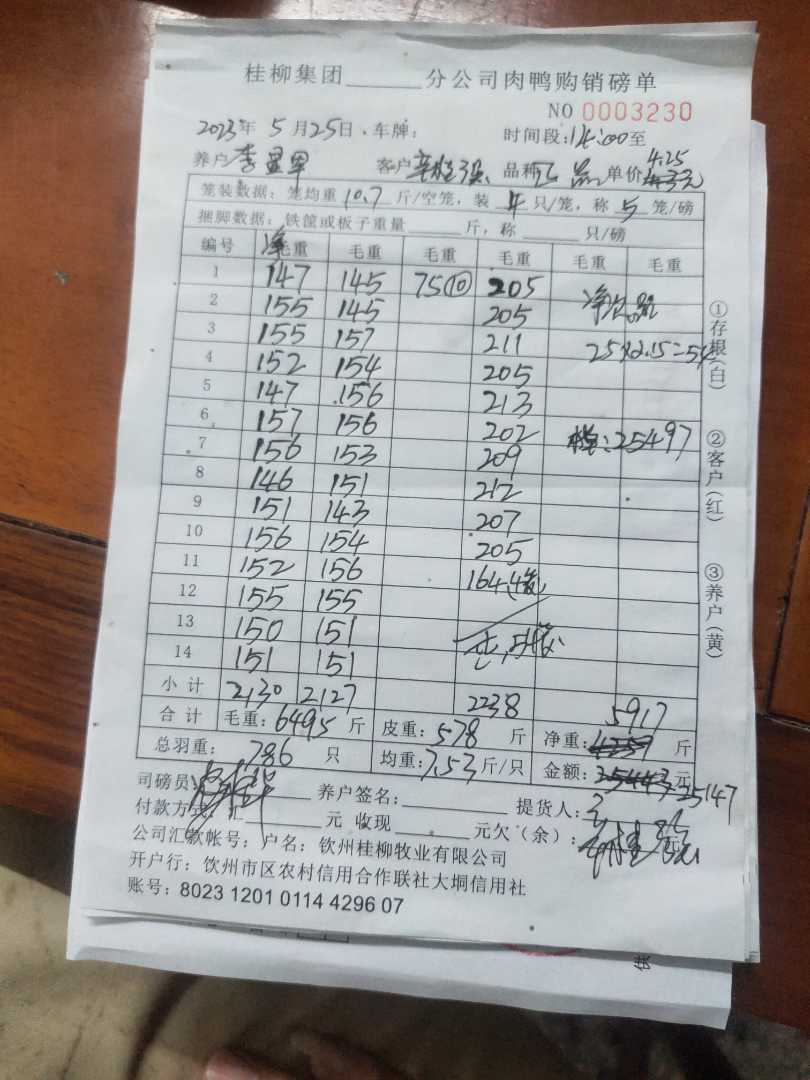 桂柳集团______分公司肉鸭购销磅单
NO 0003230
2023年 5月25日、车牌： 时间段：12:00至
养户 李显军 客户 品种 单价 4.25
笼装数据：笼均重 10.7 斤/空笼，装 4 只/笼，称 5 笼/磅
捆脚数据：铁筐或板子重量______斤，称______只/磅
编号 净毛重 毛重 毛重 毛重 毛重 毛重
1 147 145 75⑩ 205
2 155 145 205
3 155 157 211 25×2.15=54
4 152 154 205
5 147 156 213
6 157 156 202 25497
7 156 153 209
8 146 151 212
9 151 143 207
10 156 154 205
11 152 156 164
12 155 155
13 150 151
14 151 151
小计 2130 2127 2238 5917
合计 毛重：6495 斤 皮重：578 斤 净重： 斤
总羽重：786 只 均重：7.53 斤/只 金额：25443 元 25147
司磅员： 养户签名： 提货人：
付款方式：汇______元 收现______元欠（余）：
公司汇款帐号：户名：钦州桂柳牧业有限公司
开户行：钦州市区农村信用合作联社大垌信用社
账号：8023 1201 0114 4296 07
①存根（白）
②客户（红）
③养户（黄）